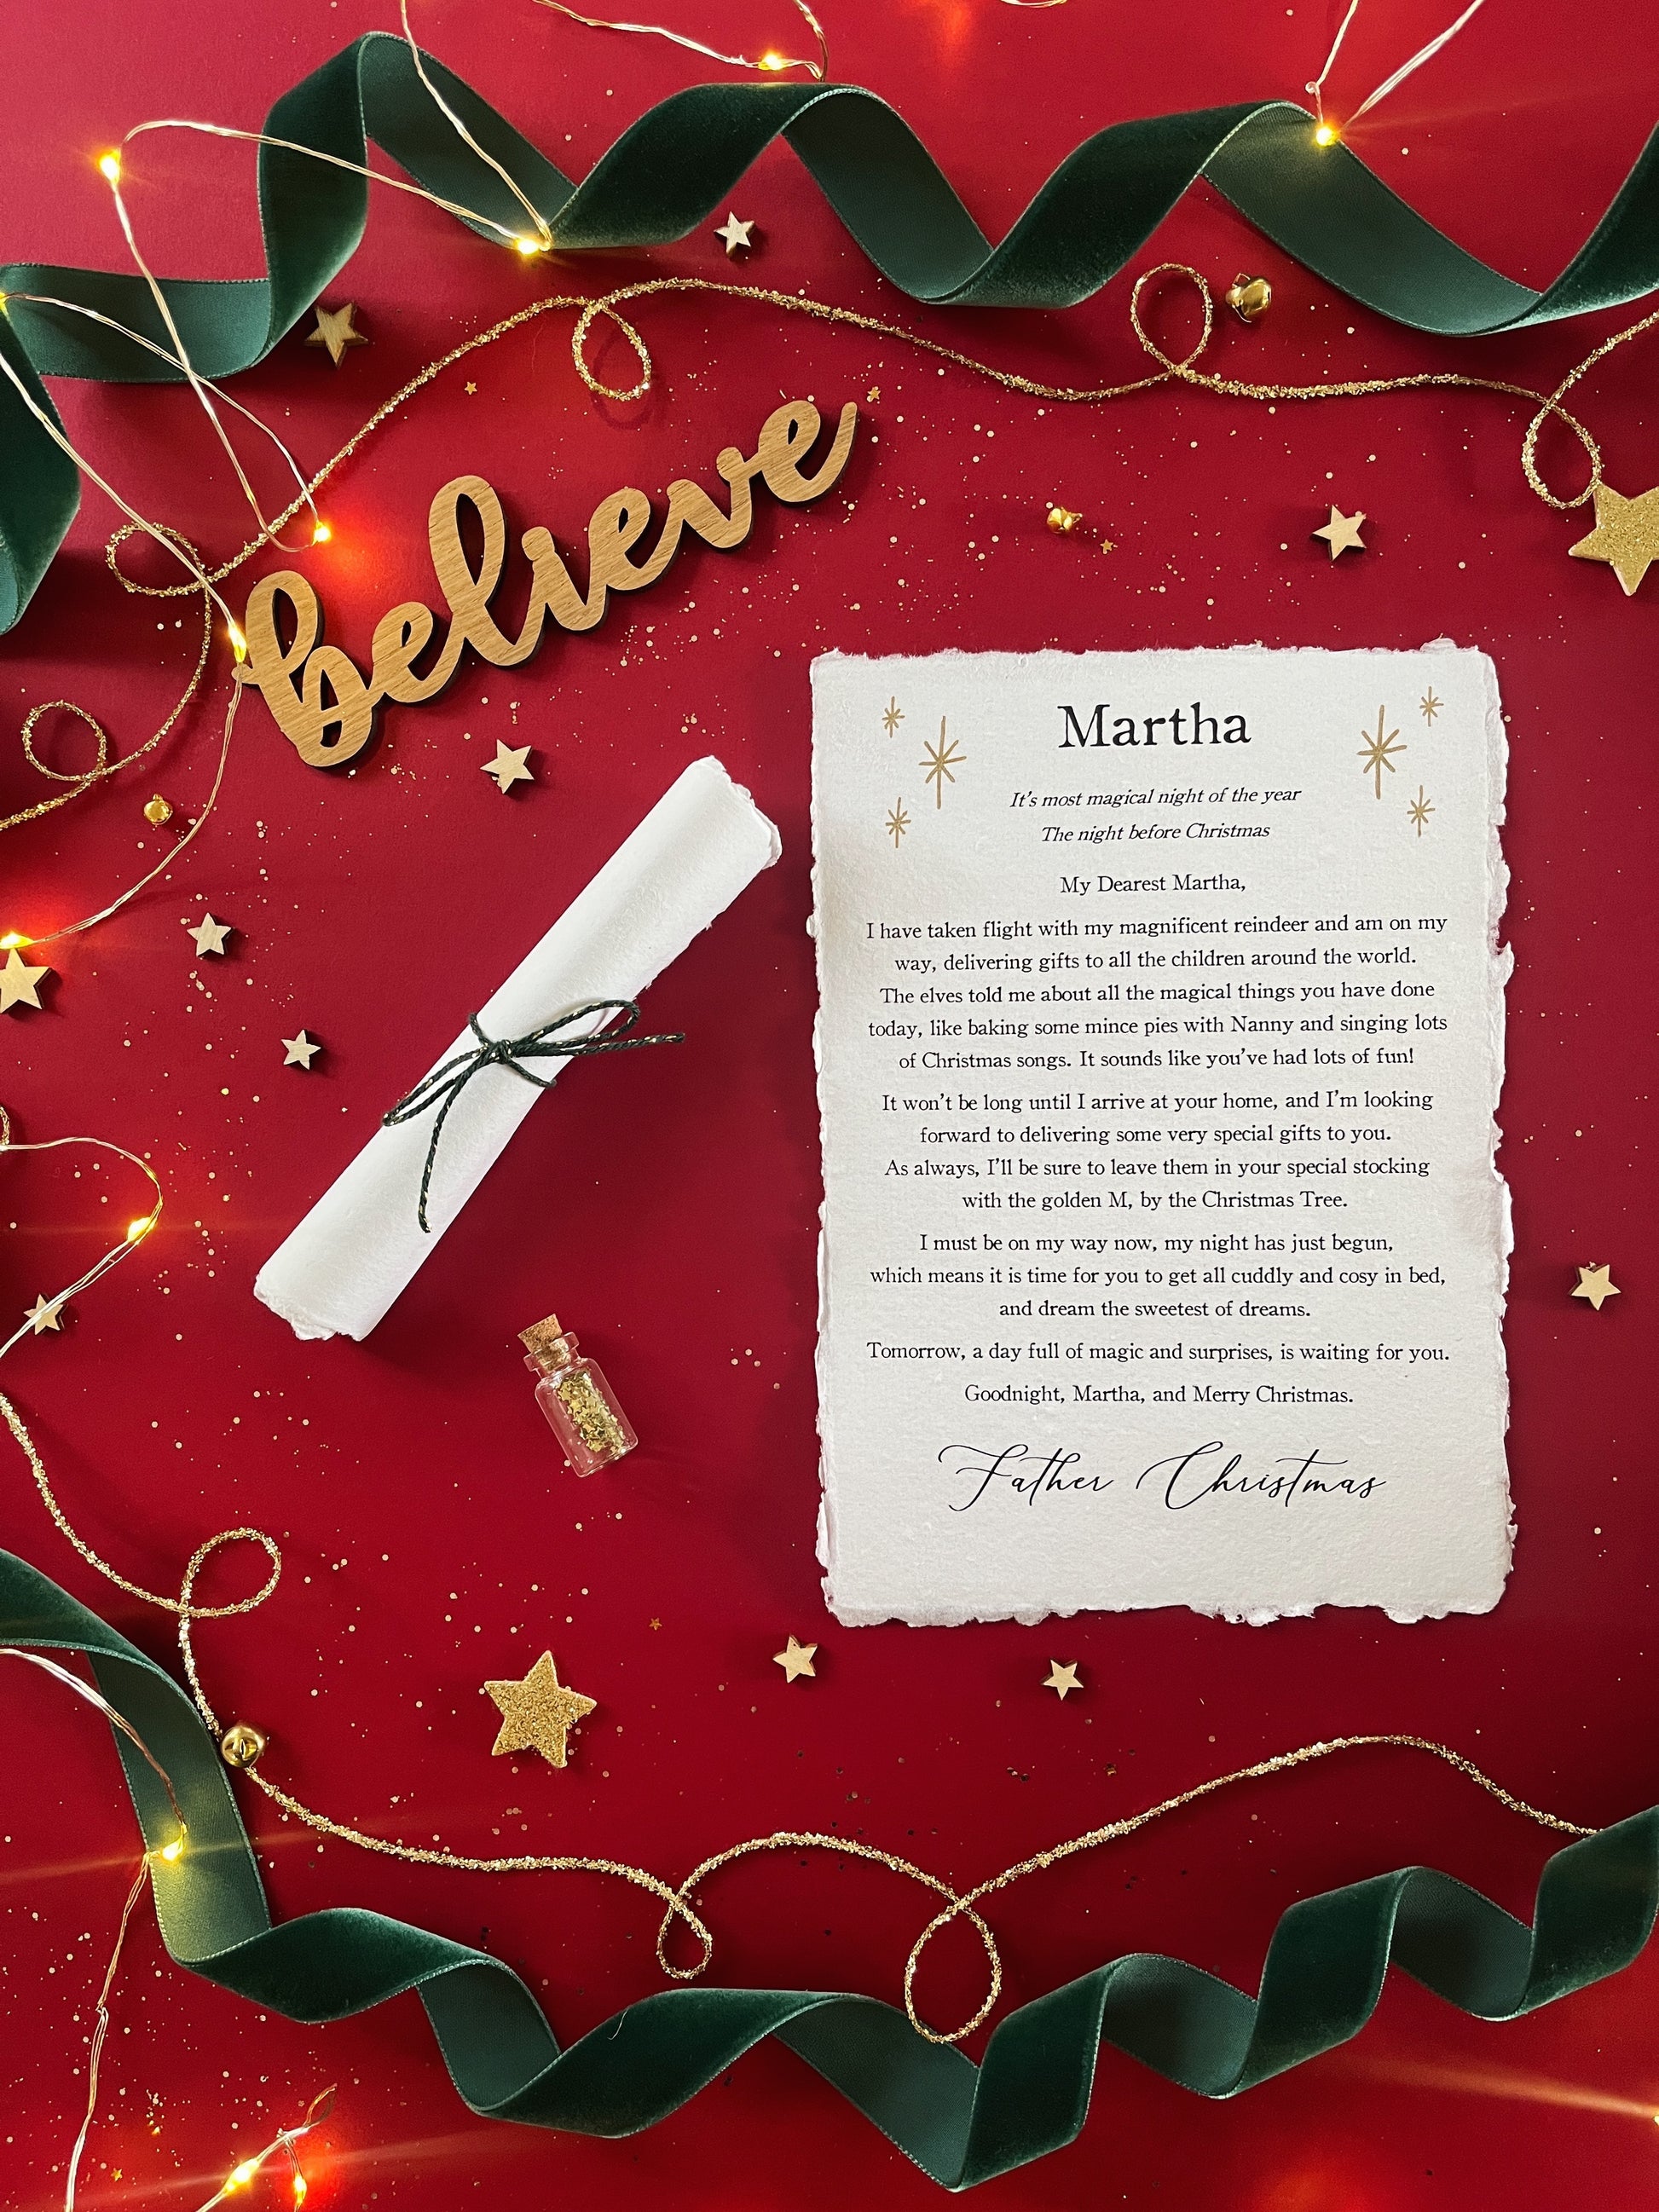 believe
Martha
It's most magical night of the year
The night before Christmas
My Dearest Martha,
I have taken flight with my magnificent reindeer and am on my
way, delivering gifts to all the children around the world.
The elves told me about all the magical things you have done
today, like baking some mince pies with Nanny and singing lots
of Christmas songs. It sounds like you've had lots of fun!
It won't be long until I arrive at your home, and I'm looking
forward to delivering some very special gifts to you.
As always, I'll be sure to leave them in your special stocking
with the golden M, by the Christmas Tree.
I must be on my way now, my night has just begun,
which means it is time for you to get all cuddly and cosy in bed,
and dream the sweetest of dreams.
Tomorrow, a day full of magic and surprises, is waiting for you.
Goodnight, Martha, and Merry Christmas.
Father Christmas